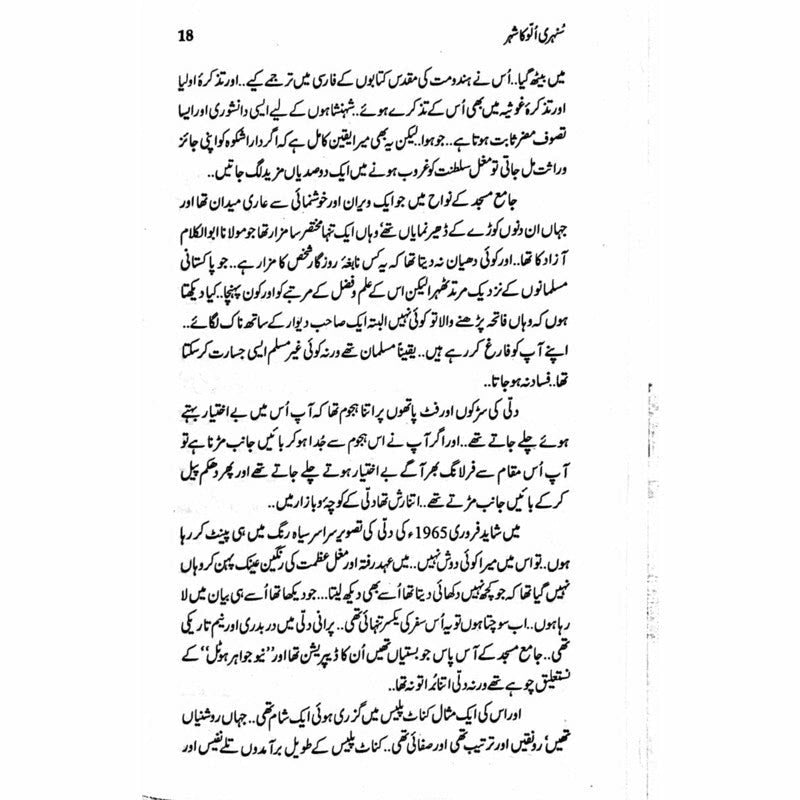 18 سُنہری اُلّو کا شہر
میں بیٹھ گیا.. اُس نے ہندومت کی مقدس کتابوں کے فارسی میں ترجمے کیے.. اور تذکرۂ اولیا
اور تذکرۂ غوثیہ میں بھی اُس کے تذکرے ہوئے.. شہنشاہوں کے لیے ایسی دانشوری اور ایسا
تصوف مضر ثابت ہوتا ہے.. جو ہوا.. لیکن یہ بھی میرا یقین کامل ہے کہ اگر داراشکوہ کو اپنی جائز
وراثت مل جاتی تو مغل سلطنت کو غروب ہونے میں ایک دو صدیاں مزید لگ جاتیں..
جامع مسجد کے نواح میں جو ایک ویران اور خوشنمائی سے عاری میدان تھا اور
جہاں ان دنوں کوڑے کے ڈھیر نمایاں تھے' وہاں ایک تنہا مختصر سا مزار تھا جو مولانا ابوالکلام
آزاد کا تھا.. اور کوئی دھیان نہ دیتا تھا کہ یہ کس نابغۂ روزگار شخص کا مزار ہے.. جو پاکستانی
مسلمانوں کے نزدیک مرتد ٹھہرا لیکن اس کے علم و فضل کے مرتبے کو اور کون پہنچا.. کیا دیکھتا
ہوں کہ وہاں فاتحہ پڑھنے والا تو کوئی نہیں البتہ ایک صاحب دیوار کے ساتھ ناک لگائے..
اپنے آپ کو فارغ کر رہے ہیں.. یقیناً مسلمان تھے ورنہ کوئی غیر مسلم ایسی جسارت کر سکتا
تھا.. فساد نہ ہو جاتا..
دلّی کی سڑکوں اور فٹ پاتھوں پر اتنا ہجوم تھا کہ آپ اُس میں بے اختیار بہتے
ہوئے چلے جاتے تھے.. اور اگر آپ نے اس ہجوم سے جُدا ہو کر بائیں جانب مڑنا ہے تو
آپ اُس مقام سے فرلانگ بھر آگے بے اختیار ہوتے چلے جاتے تھے اور پھر دھکم پیل
کر کے بائیں جانب مڑتے تھے.. اتنا رش تھا دلّی کے کوچہ و بازار میں..
میں شاید فروری 1965ء کی دلّی کی تصویر سراسر سیاہ رنگ میں ہی پینٹ کر رہا
ہوں.. تو اس میں میرا کوئی دوش نہیں.. میں عہد رفتہ اور مغل عظمت کی رنگین عینک پہن کر وہاں
نہیں گیا تھا کہ جو کچھ نہیں دکھائی دیتا تھا اُسے بھی دیکھ لیتا... جو دیکھا تھا اُسے ہی بیان میں لا
رہا ہوں.. اب سوچتا ہوں تو یہ اُس سفر کی یکسر تنہائی تھی.. پرانی دلّی میں دربدری اور نیم تاریکی
تھی.. جامع مسجد کے آس پاس جو بستیاں تھیں اُن کا ڈیپریشن تھا اور ''نیو جواہر ہوٹل'' کے
نستعلیق چوہے تھے ورنہ دلّی اتنا بُرا تو نہ تھا..
اور اس کی ایک مثال کناٹ پلیس میں گزری ہوئی ایک شام تھی.. جہاں روشنیاں
تھیں' رونقیں اور ترتیب تھی اور صفائی تھی.. کناٹ پلیس کے طویل برآمدوں تلے نفیس اور